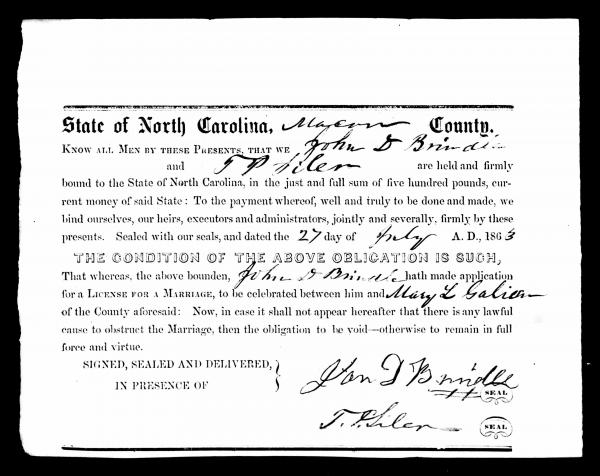 State of North Carolina, Macon County.
KNOW ALL MEN BY THESE PRESENTS, THAT WE John D Brindle
and T P Siler are held and firmly
bound to the State of North Carolina, in the just and full sum of five hundred pounds, cur-
rent money of said State: To the payment whereof, well and truly to be done and made, we
bind ourselves, our heirs, executors and administrators, jointly and severally, firmly by these
presents. Sealed with our seals, and dated the 27 day of July A. D., 1863
THE CONDITION OF THE ABOVE OBLIGATION IS SUCH,
That whereas, the above bounden, John D Brindle hath made application
for a LICENSE FOR A MARRIAGE, to be celebrated between him and Mary L
of the County aforesaid: Now, in case it shall not appear hereafter that there is any lawful
cause to obstruct the Marriage, then the obligation to be void—otherwise to remain in full
force and virtue.
SIGNED, SEALED AND DELIVERED,
IN PRESENCE OF
Jon D Brindle SEAL
T. P. Siler SEAL